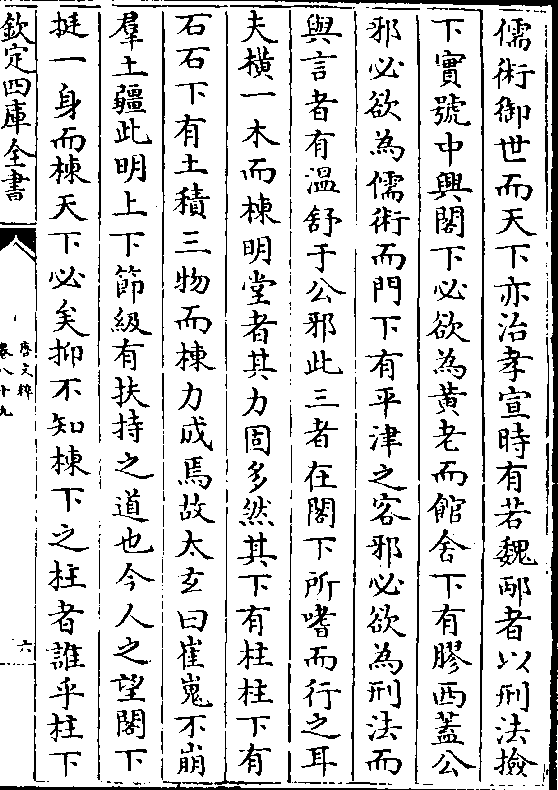 儒術御世而天下亦治孝宣時有若魏邴者以刑法撿
下實號中興閣下必欲為黃老而館舍下有膠西蓋公
邪必欲為儒術而門下有平津之客邪必欲為刑法而
與言者有溫舒于公邪此三者在閣下所嗜而行之耳
夫橫一木而棟明堂者其力固多然其下有柱柱下有
石石下有土積三物而棟力成焉故太玄曰崔嵬不崩
羣土疆此明上下節級有扶持之道也今人之望閣下
挺一身而棟天下必矣抑不知棟下之柱者誰乎柱下
欽定四庫全書
唐文粹
卷八十九
六